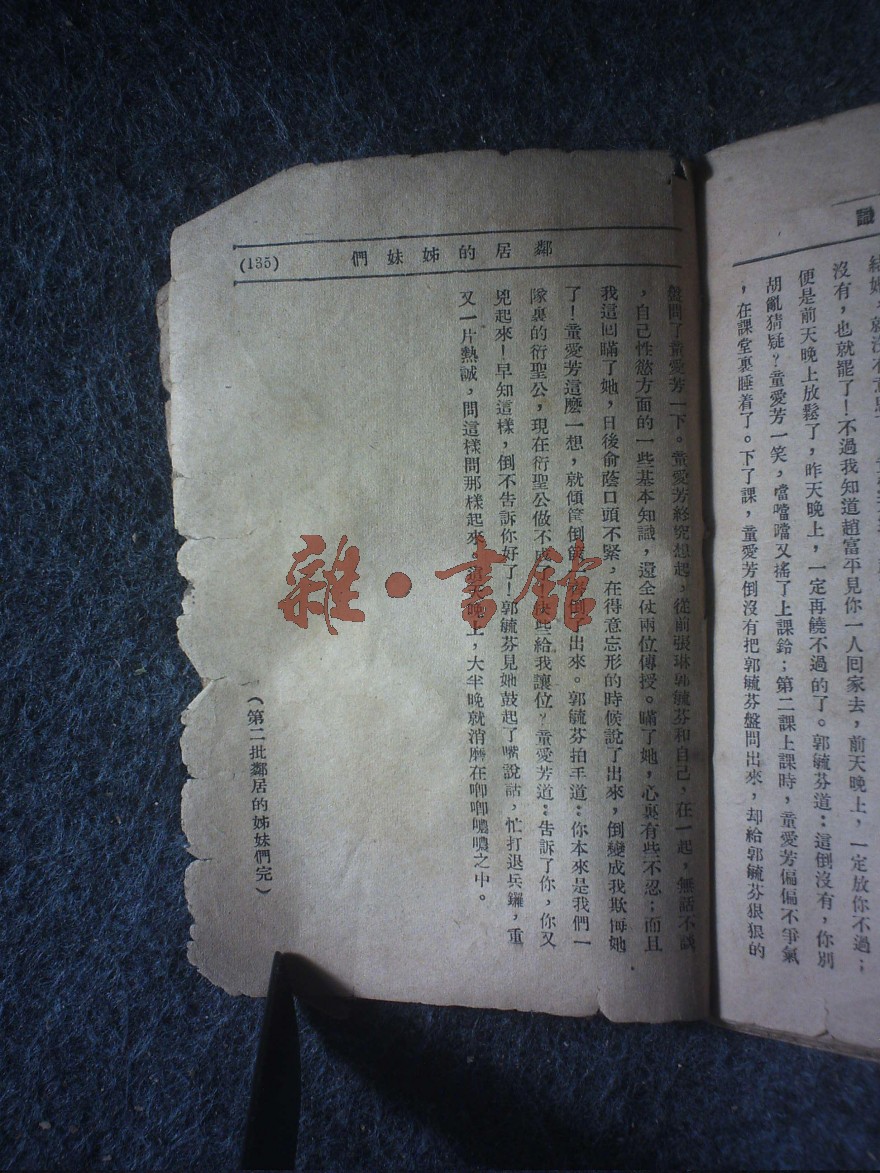 結婚，就沒有意思
沒有，也就罷了！不過我知道趙富平見你一人回家去，前天晚上，一定放你不過；
便是前天晚上放鬆了，昨天晚上，一定再饒不過的了。郭毓芬道：這倒沒有，你別
胡亂猜疑？童愛芳一笑，噹噹噹又搖了上課鈴；第二課上課時，童愛芳偏偏不爭氣
，在課堂裏睡着了。下了課，童愛芳倒沒有把郭毓芬盤問出來，却給郭毓芬狠狠的
鄰居的姊妹們
(135)
盤問了童愛芳一下。童愛芳終究想起，從前張琳郭毓芬和自己，在一起，無話不談
，自己性慾方面的一些基本知識，還全仗兩位傳授。瞞了她，心裏有些不忍；而且
我這回瞞了她，日後俞蔭口頭不緊，在得意忘形的時候說了出來，倒變成我欺侮她
了！童愛芳這麼一想，就傾筐倒篋倒了出來。郭毓芬拍手道：你本來是我們一
隊裏的衍聖公，現在衍聖公做不成了快些給我讓位？童愛芳道：告訴了你，你又
兇起來！早知這樣，倒不告訴你好了！郭毓芬見她鼓起了嘴說話，忙打退兵鑼，重
又一片熱誠，問這樣問那樣起來。這天晚上，大半晚就消磨在唧唧噥噥之中。
（第二批鄰居的姊妹們完）
雜·書館